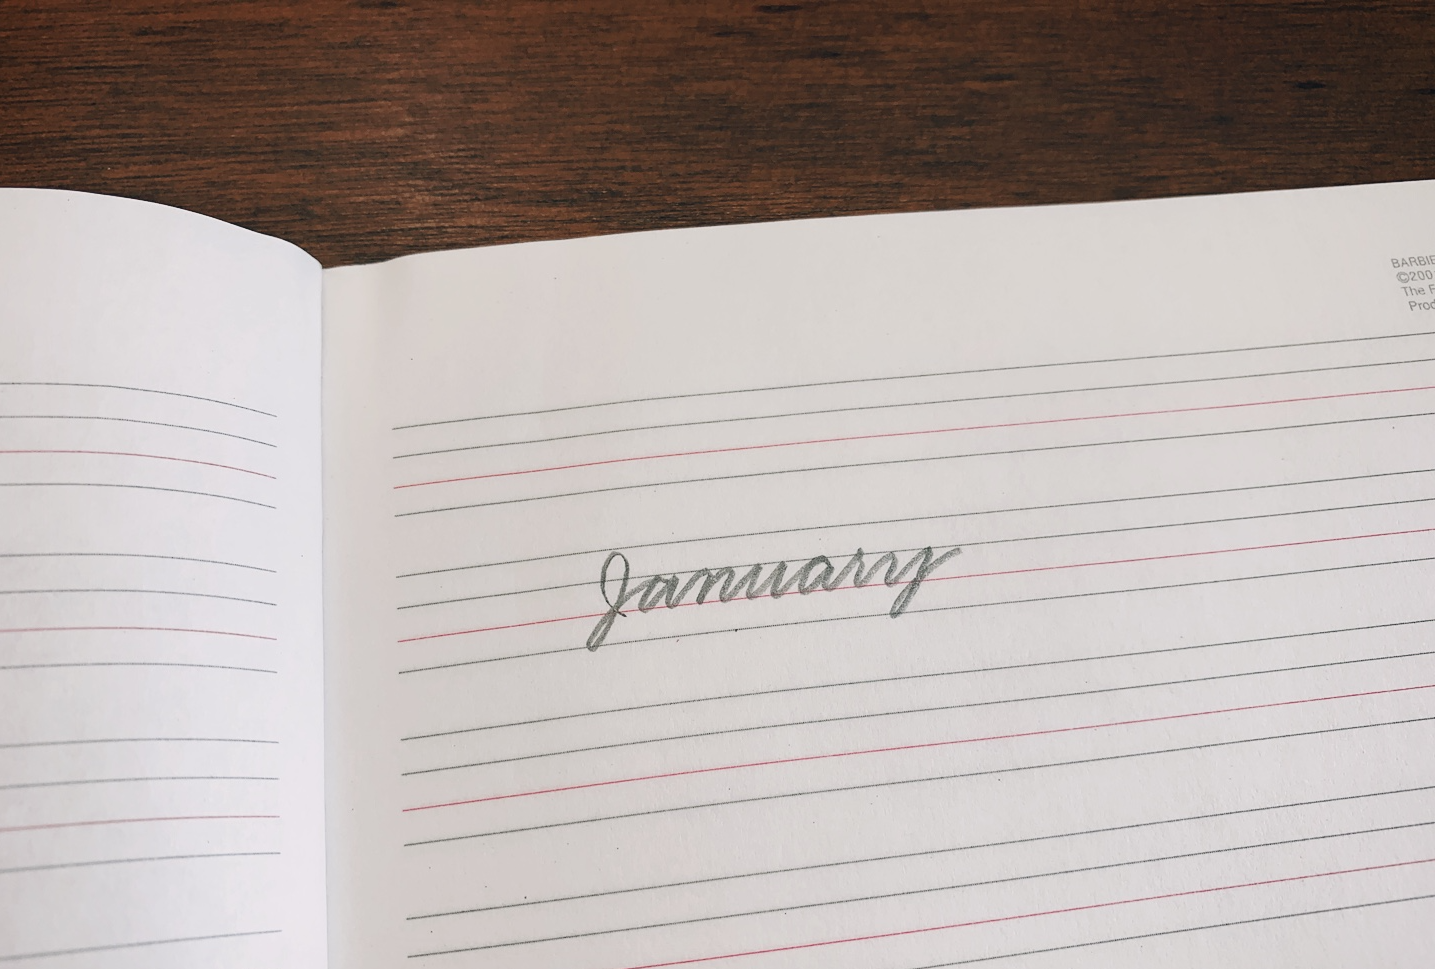 BARBIE
©200
The F
Prod
January